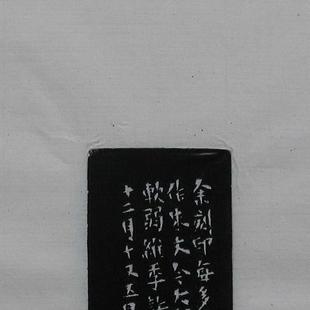 余刻印每多
作朱文今
軟弱
十二月十又五日